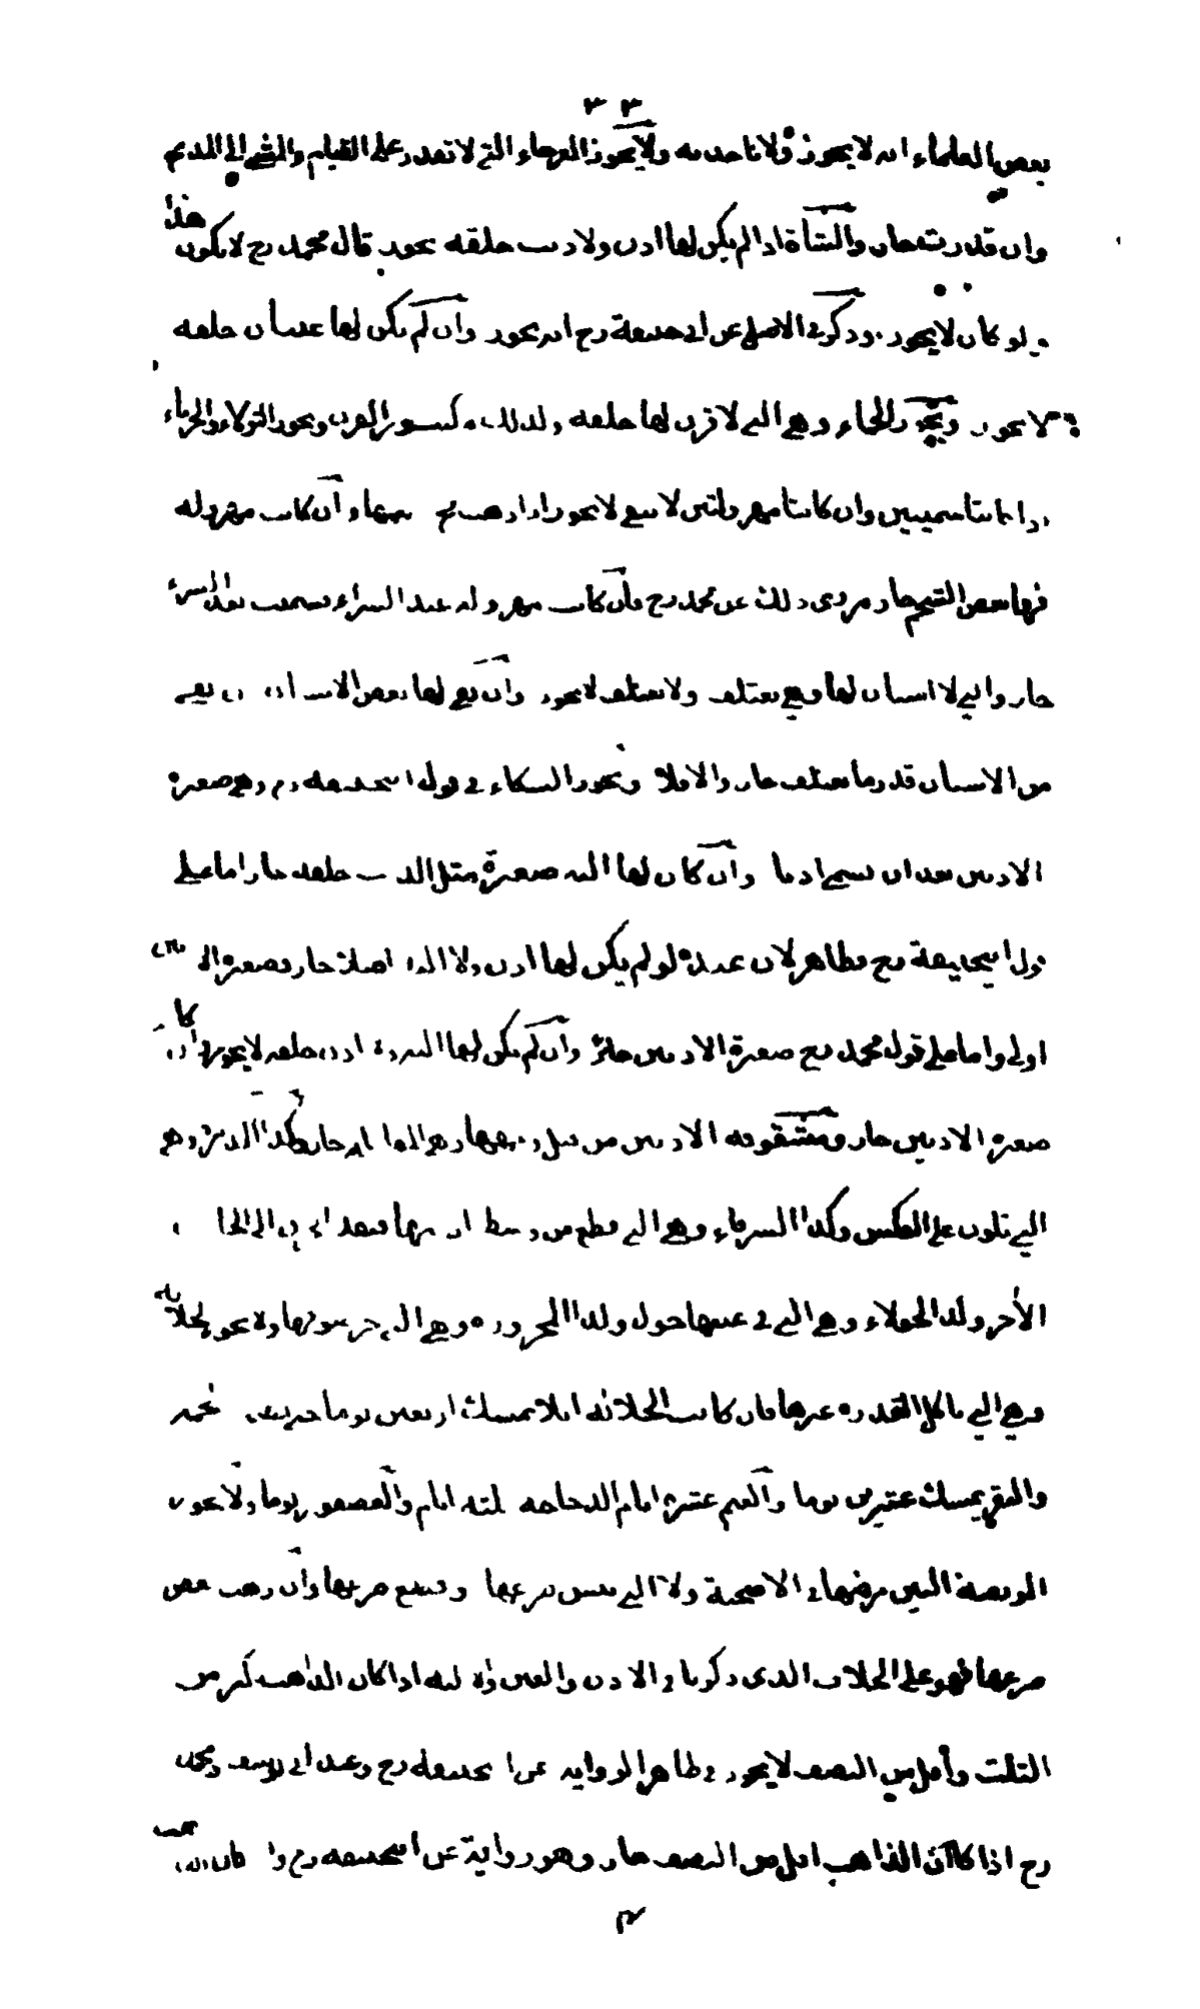 ٣٣
بعض العلماء انه لا يجوز ولا ناخذ به ولا يجوز العرجاء التي لا تقدر على القيام والمشي الى المذبح
وان قدرت جاز والشاة اذا لم يكن لها اذن ولا ذنب خلقة يجوز قال محمد رح لا يكون هذا
ولو كان لا يجوز وذكر في الاصل عن ابي حنيفة رح انه يجوز وان لم يكن لها عينان خلقة
لا يجوز ويجوز الجماء وهي التي لا قرن لها خلقة وكذلك مكسور القرن ويجوز الثولاء والجرباء
اذا كانتا سمينتين وان كانتا مهزولتين لا ينقي لا يجوز اذا ذهب مخ عينها وان كانت مهزولة
فيها بعض الشحم جاز مروى ذلك عن محمد رح فان كانت مهزولة عند الشراء فسمنت بعد الشراء
جاز والتي لا اسنان لها وهي تعتلف ولا تعتلف لا يجوز وان بقي لها بعض الاسنان ان بقي
من الاسنان قدر ما تعتلف جاز والا فلا ويجوز السكاء في قول ابي حنيفة رح وهي صغيرة
الاذنين بعد ان تسمى اذنا وان كان لها الية صغيرة مثل الذنب خلقة جاز اما على
قول ابي حنيفة رح فظاهر لان عنده لو لم يكن لها اذن ولا الية اصلا جاز فصغيرة
اولى واما على قول محمد رح صغيرة الاذنين جائز وان لم يكن لها الية ولا اذن خلقة لا يجوز
صغيرة الاذنين جاز ومشقوقة الاذنين من قبل وجهها وهي المقابلة جاز وكذا
التي تكون على العكس وكذا الشرقاء وهي التي قطع من وسط اذنها فنفذ الى الجانب
الآخر وكذا الحولاء وهي التي في عينها حول وكذا المجزوزة وهي التي جز صوفها ولا يجوز الجلالة
وهي التي تاكل القذرة غيرها فان كانت الجلالة ابلا تمسك اربعين يوما حتى
والبقر يمسك عشرين يوما والغنم عشرة ايام الدجاجة ثلثة ايام والعصفور يوما ولا يجوز
المريضة البين مرضها في الاضحية ولا التي يبس ضرعها وقطع ضرعها وان ذهب بعض
ضرعها فهو على الخلاف الذي ذكرنا في الاذن والعين والالية اذا كان الذاهب اكثر من
الثلث واقل من النصف لا يجوز في ظاهر الرواية عن ابي حنيفة رح وعند ابي يوسف ومحمد
رح اذا كان الذاهب اقل من النصف جاز وهو رواية عن ابي حنيفة رح وان كان